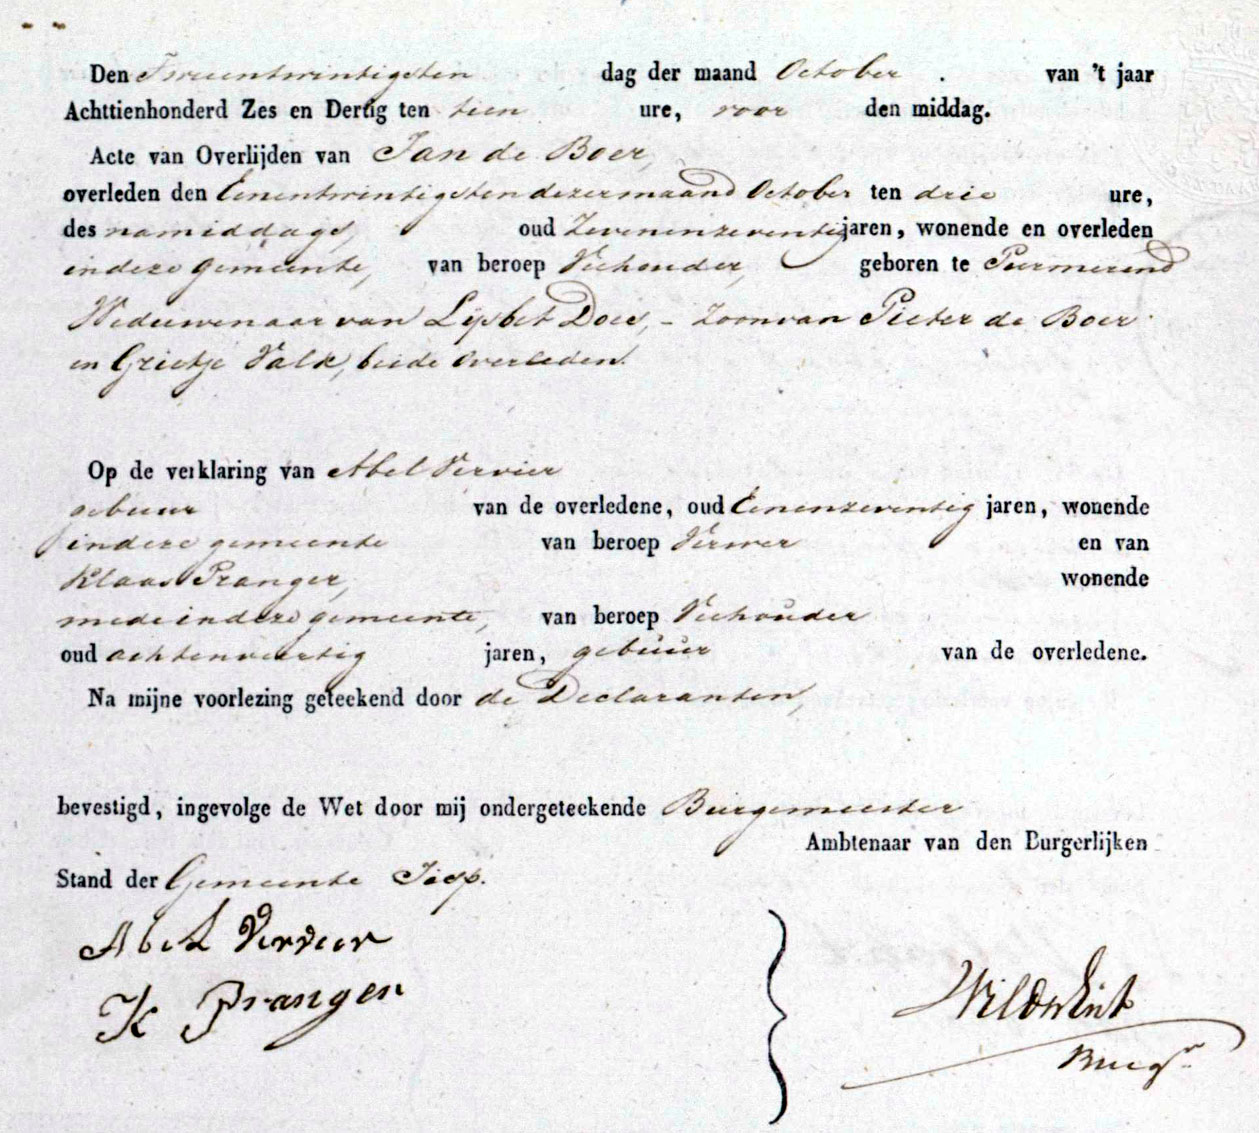 Den Tweeentwintigsten dag der maand October . van 't jaar
Achttienhonderd Zes en Dertig ten tien ure, voor den middag.
Acte van Overlijden van Jan de Boer,
overleden den Eenentwintigsten dezer maand October ten drie ure,
des namiddags, oud Zevenenzeventig jaren, wonende en overleden
in deze gemeente, van beroep Veehouder, geboren te Purmerend
Weduwenaar van Lijsbet Does, - Zoon van Pieter de Boer
en Grietje Valk, beide Overleden.
Op de verklaring van Abel Vervier
gebuur van de overledene, oud Eenenzeventig jaren, wonende
in deze gemeente van beroep Verwer en van
Klaas Pranger, wonende
mede in deze gemeente, van beroep Veehouder
oud achtenveertig jaren, gebuur van de overledene.
Na mijne voorlezing geteekend door de Declaranten,
bevestigd, ingevolge de Wet door mij ondergeteekende Burgemeester
Ambtenaar van den Burgerlijken
Stand der Gemeente Jisp.
Abel Verveer
K Pranger
Burgr